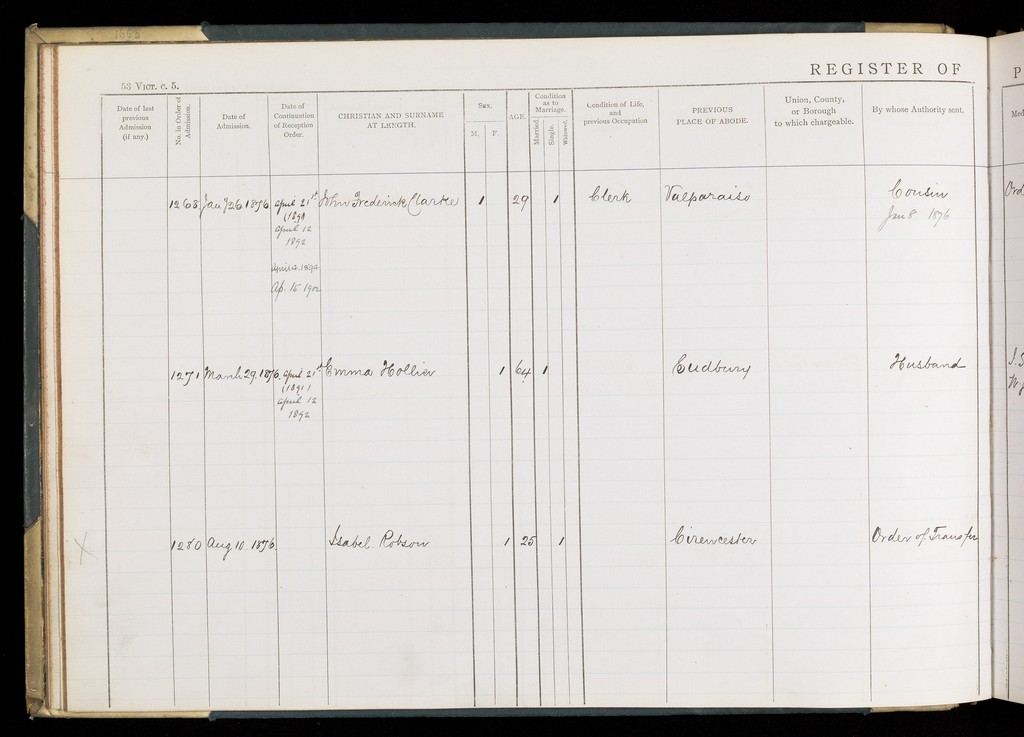 1663
REGISTER OF
53 Vict. c. 5.
Date of last previous Admission (if any.)
No. in Order of Admission.
Date of Admission.
Date of Continuation of Reception Order.
CHRISTIAN AND SURNAME AT LENGTH.
Sex.
M. F.
AGE.
Condition as to Marriage.
Married. Single. Widowed.
Condition of Life, and previous Occupation
PREVIOUS PLACE OF ABODE.
Union, County, or Borough to which chargeable.
By whose Authority sent.
Med
1268 Jany 26 1876 April 21st John Frederick Clarke 1 29 1 Clerk Valparaiso Cousin Ord
(1891) Jan 8 1876
April 12
1892
April 12 1892
Ap. 15 1902
1271 March 29. 1876. April 21st Emma Hollier 1 64 1 Sudbury Husband
(1891)
April 12
1892
X 1280 Aug 10. 1876. Isabel Robson 1 25 1 Cirencester Order of Transfer